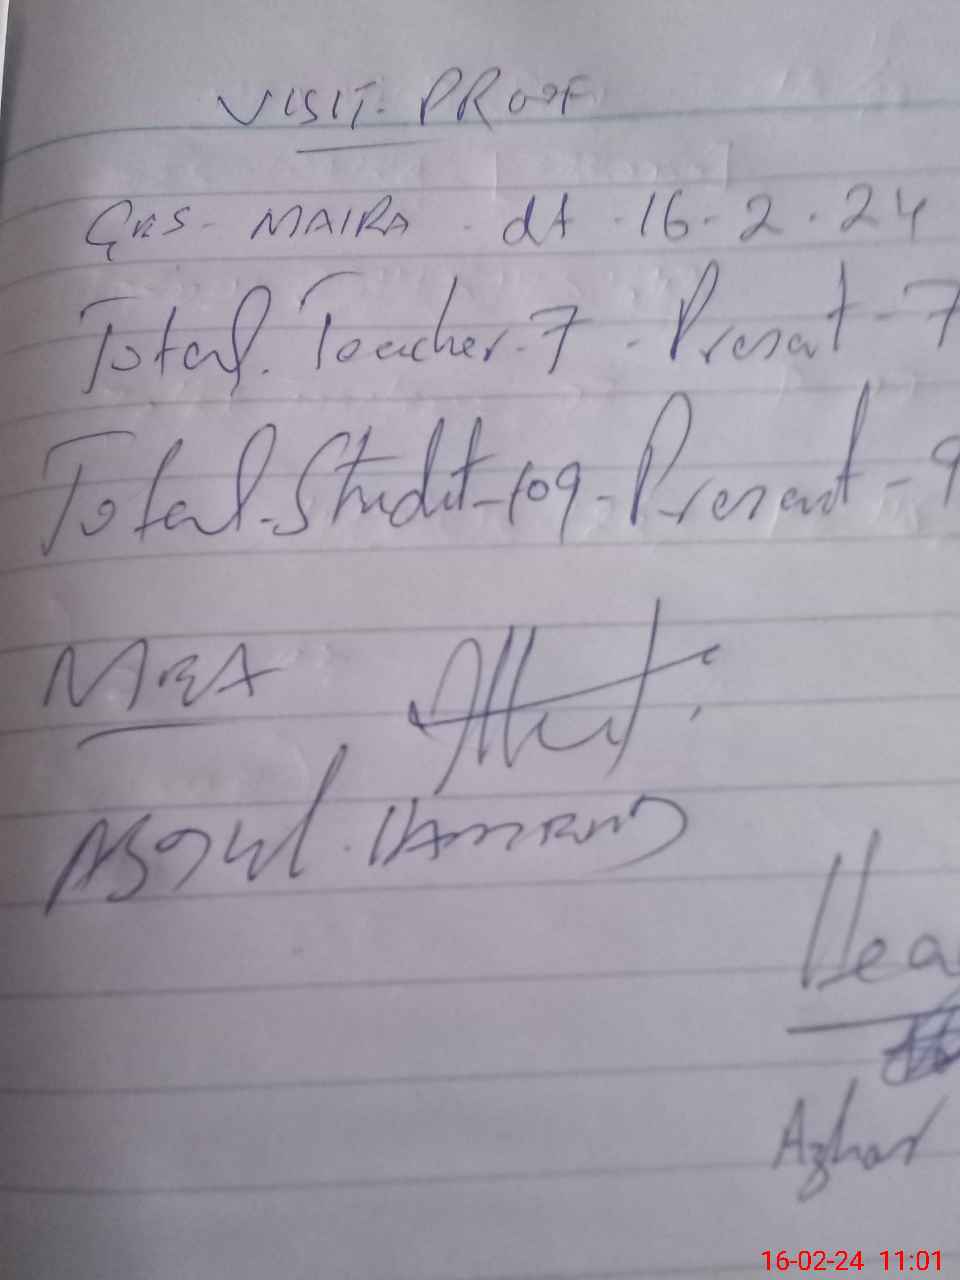 VISIT. PROOF
GHS - MAIRA . dt . 16 - 2 . 24
Total. Teacher - 7 . Present - 7
Total - Studt - 109 - Present - 9
MEA
ABDUL . HAMEED
Hea
Azhar
16-02-24 11:01